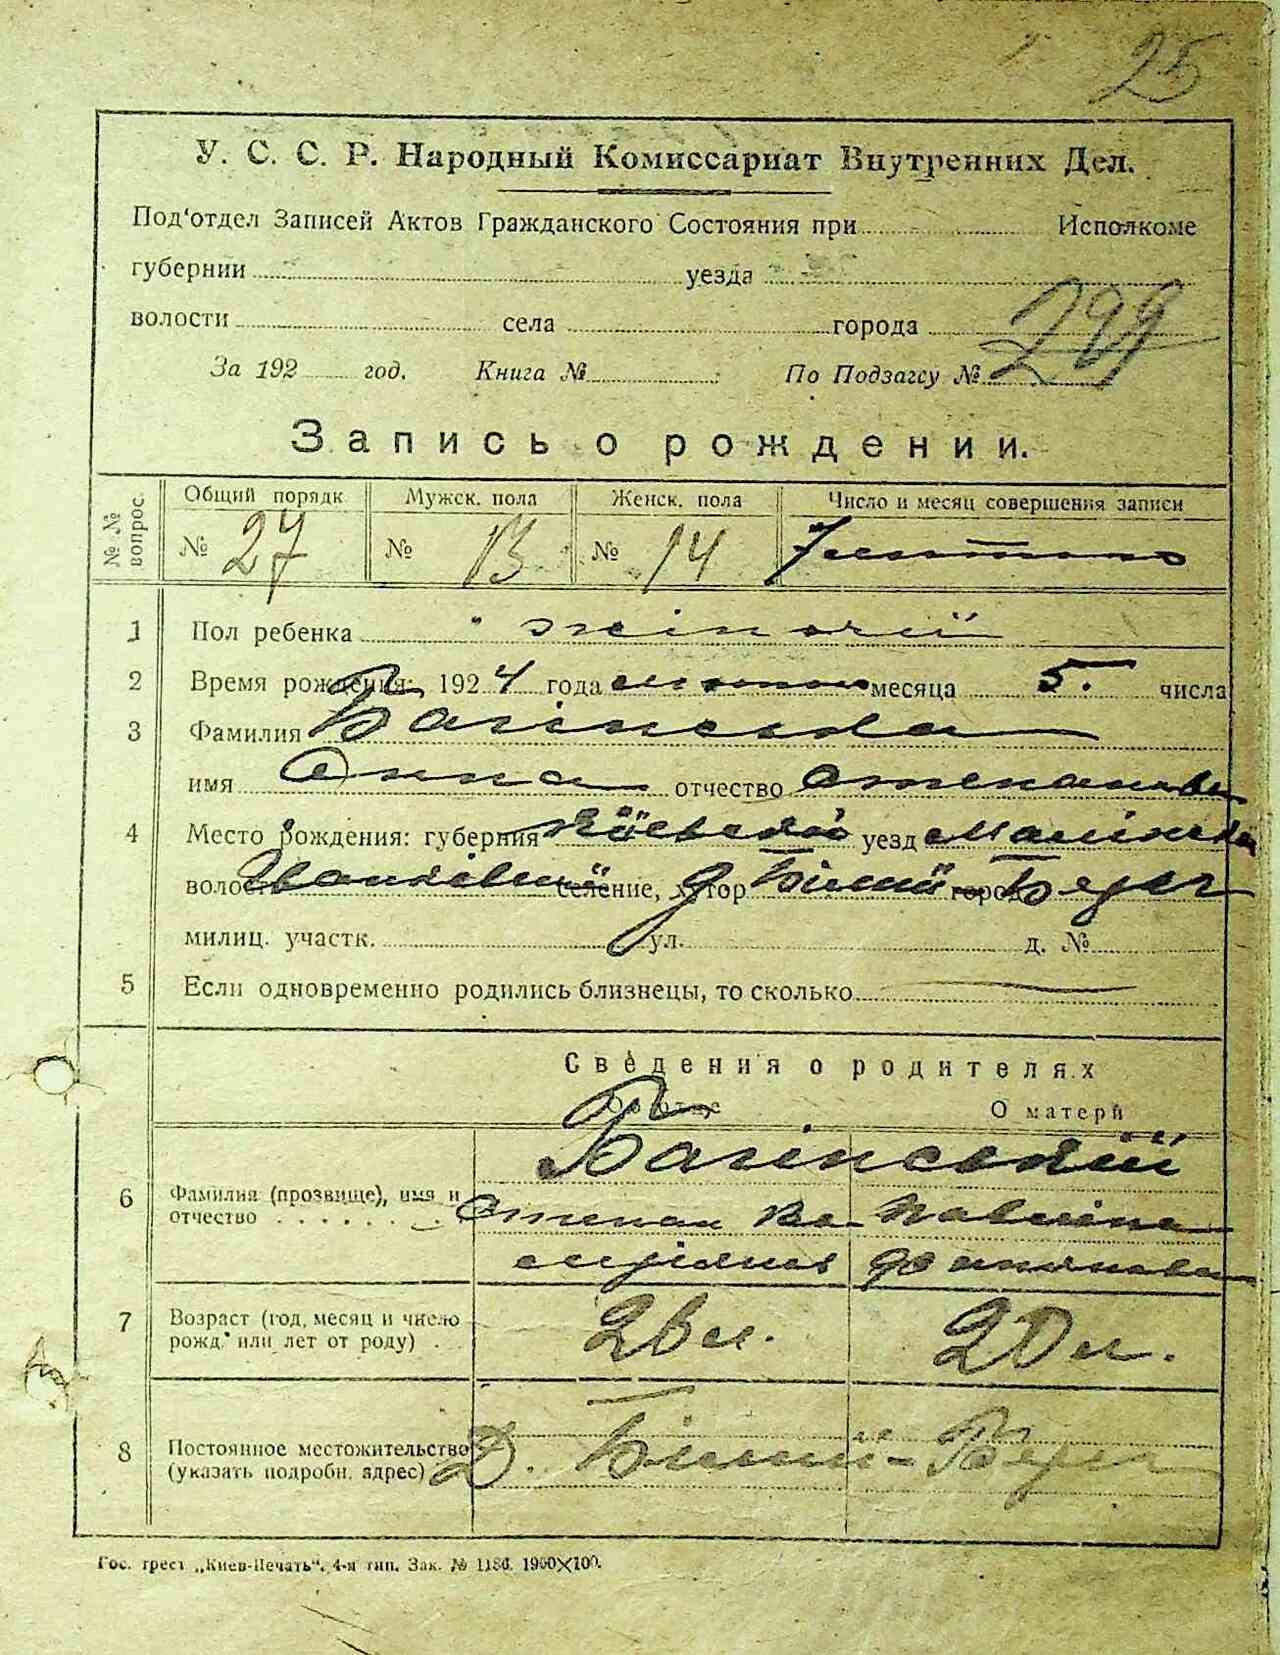 25
У. С. С. Р. Народный Комиссариат Внутренних Дел.
Под'отдел Записей Актов Гражданского Состояния при Исполкоме
губернии уезда
волости села города
За 192 год. Книга № По Подзагсу № 299
Запись о рождении.
№ № вопрос. Общий порядк Мужск. пола Женск. пола Число и месяц совершения записи
№ 27 № 13 № 14 7 лютого
1 Пол ребенка жіночий
2 Время рождения: 1924 года лютого месяца 5. числа
3 Фамилия Багінська
имя Анна отчество Степанова
4 Место рождения: губерния Київській уезд Малінська
волос Іванківській селение, хутор д Білий город Берег
милиц. участк. ул. д. №
5 Если одновременно родились близнецы, то сколько
Сведения о родителях
О матери
Багінський
6 Фамилия (прозвище), имя и
отчество . . . . . . . Степан
7 Возраст (год, месяц и число
рожд. или лет от роду) . . 26 л. 20 л.
8 Постоянное местожительство
(указать подробн. адрес) Д. Білий-Берег
Гос. трест „Киев-Печать“, 4-я тип. Зак. № 1186. 1900×100.